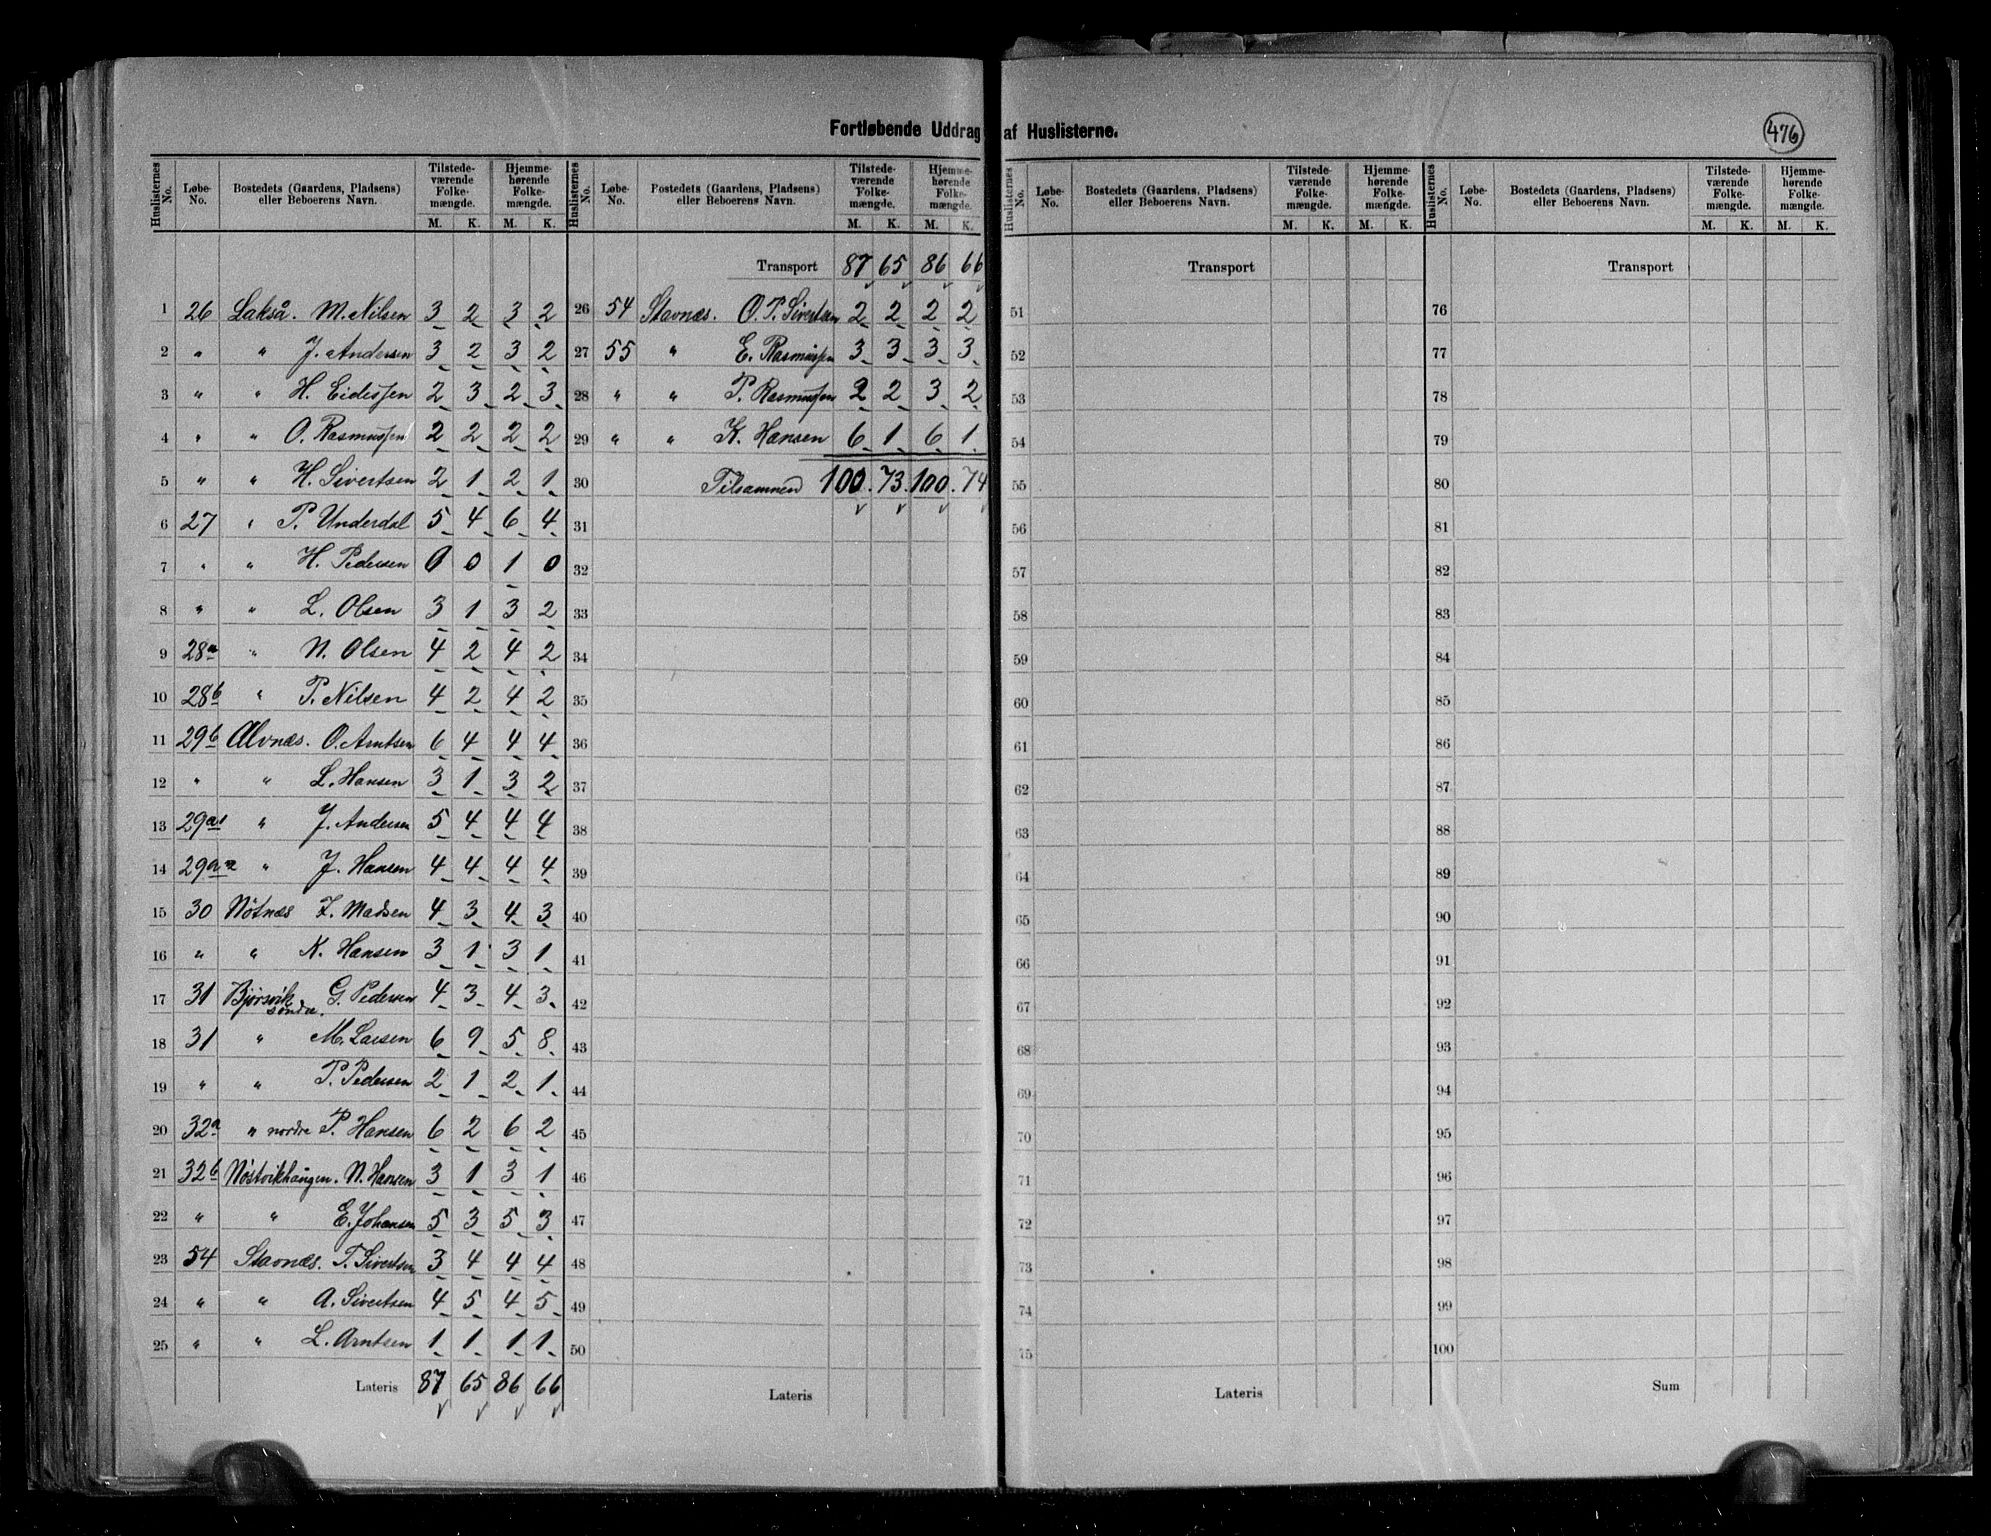 Fortløbende Uddrag af Huslisterne.
476
Huslisternes No. | Løbe-No. | Bostedets (Gaardens, Pladsens) eller Beboerens Navn. | Tilstedeværende Folkemængde. M. K. | Hjemmehørende Folkemængde. M. K.
1 26 Lakså. M. Nilsen 3 2 3 2
2 " " J. Andersen 3 2 3 2
3 " " H. Eidessen 2 3 2 3
4 " " O. Rasmussen 2 2 2 2
5 " " H. Sivertsen 2 1 2 1
6 27 " P. Underdal 5 4 6 4
7 " " H. Pedersen 0 0 1 0
8 " " L. Olsen 3 1 3 2
9 28a " N. Olsen 4 2 4 2
10 28b " P. Nilsen 4 2 4 2
11 29b Alvnæs. O. Arntsen 6 4 4 4
12 " " L. Hansen 3 1 3 2
13 29a1 " J. Andersen 5 4 4 4
14 29a2 " J. Hansen 4 4 4 4
15 30 Nötnæs Z. Madsen 4 3 4 3
16 " " N. Hansen 3 1 3 1
17 31 Bjørsvik søndre. G. Pedersen 4 3 4 3
18 31 " M. Larsen 6 9 5 8
19 " " P. Pedersen 2 1 2 1
20 32a " nordre P. Hansen 6 2 6 2
21 32b Nöstvikhaugen. N. Hansen 3 1 3 1
22 " " E. Johansen 5 3 5 3
23 54 Stavnæs. T. Sivertsen 3 4 4 4
24 " " A. Sivertsen 4 5 4 5
25 " " L. Arntsen 1 1 1 1
Lateris 87 65 86 66
Huslisternes No. | Løbe-No. | Postedets (Gaardens, Pladsens) eller Beboerens Navn. | Tilstedeværende Folkemængde. M. K. | Hjemmehørende Folkemængde. M. K.
Transport 87 65 86 66
26 54 Stavnæs. O. P. Sivertsen 2 2 2 2
27 55 " E. Rasmussen 3 3 3 3
28 " " P. Rasmussen 2 2 3 2
29 " " K. Hansen 6 1 6 1
30 Tilsammen 100 73 100 74
31
32
33
34
35
36
37
38
39
40
41
42
43
44
45
46
47
48
49
50
Lateris
Huslisternes No. | Løbe-No. | Bostedets (Gaardens, Pladsens) eller Beboerens Navn. | Tilstedeværende Folkemængde. M. K. | Hjemmehørende Folkemængde. M. K.
Transport
51
52
53
54
55
56
57
58
59
60
61
62
63
64
65
66
67
68
69
70
71
72
73
74
75
Lateris
Huslisternes No. | Løbe-No. | Bostedets (Gaardens, Pladsens) eller Beboerens Navn. | Tilstedeværende Folkemængde. M. K. | Hjemmehørende Folkemængde. M. K.
Transport
76
77
78
79
80
81
82
83
84
85
86
87
88
89
90
91
92
93
94
95
96
97
98
99
100
Sum